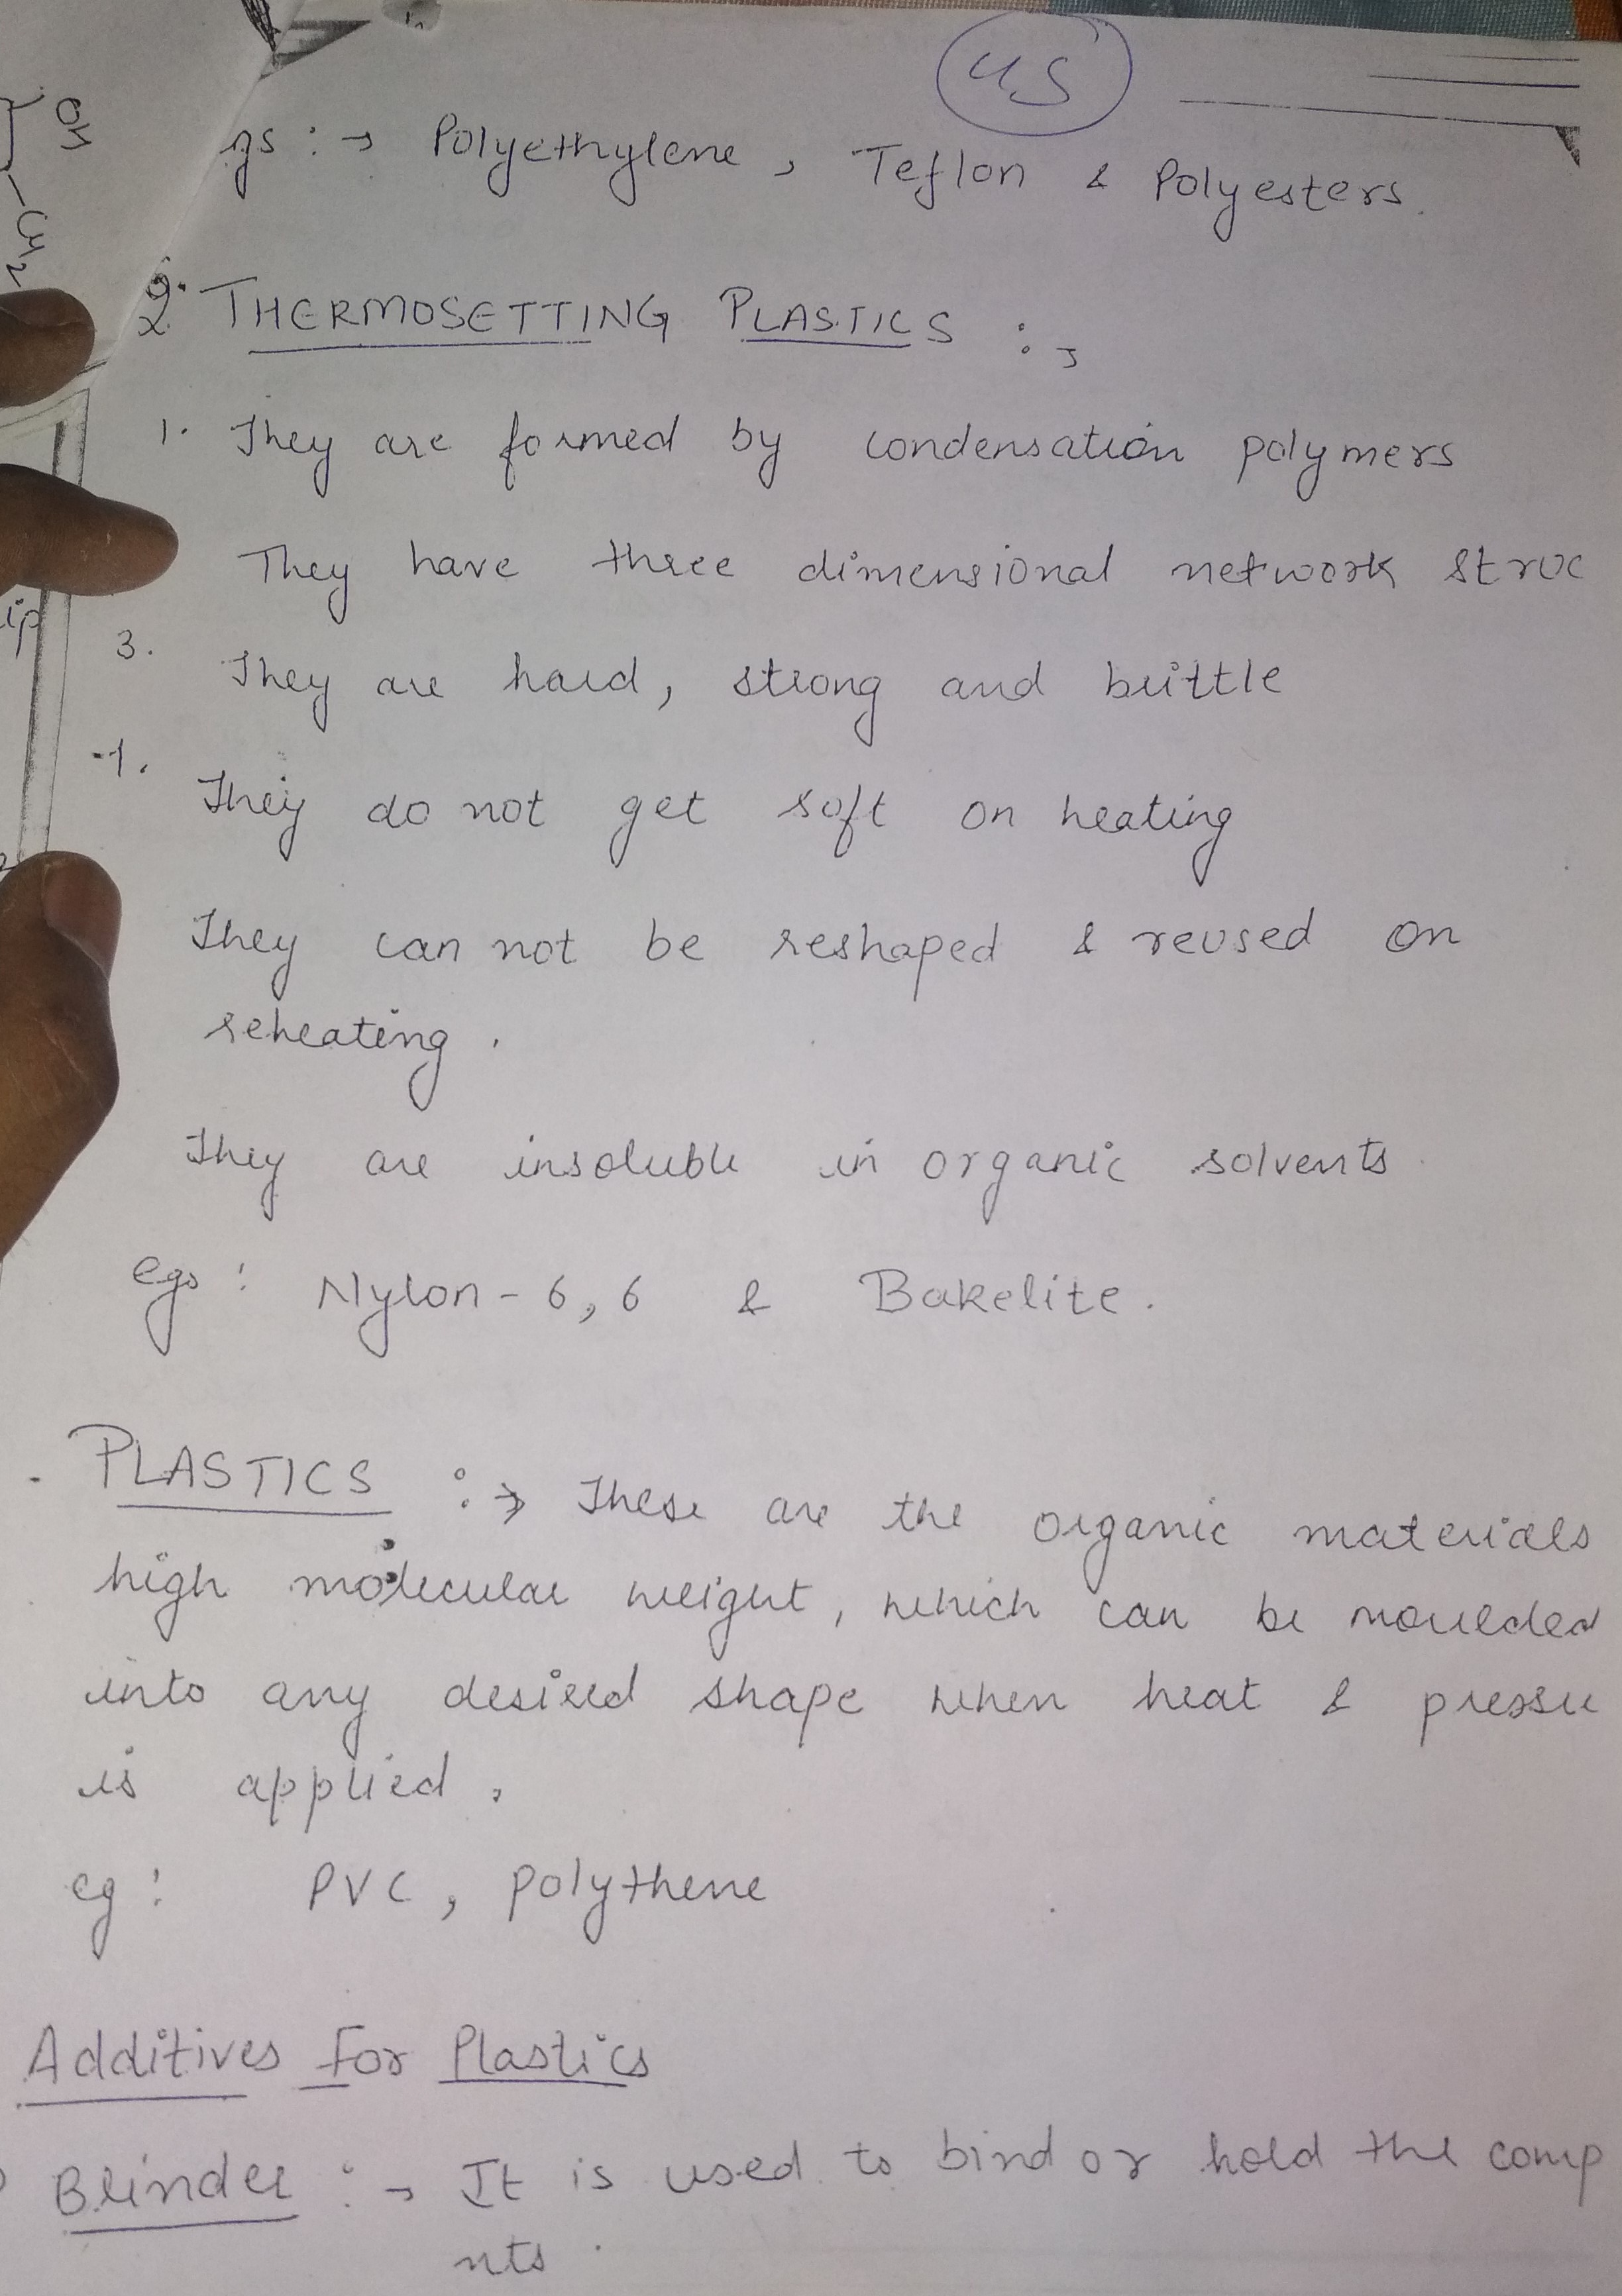 45
gs :→ Polyethylene, Teflon & Polyesters.
2. THERMOSETTING PLASTICS :→
1. They are formed by condensation polymers
They have three dimensional network struc
3. They are hard, strong and brittle
They do not get soft on heating
They can not be reshaped & reused on
reheating.
They are insoluble in organic solvents
egs : Nylon-6,6 & Bakelite.
PLASTICS :→ These are the organic materials
high molecular weight, which can be moulded
into any desired shape when heat & pressu
is applied.
eg : PVC, polythene
Additives For Plastics
Blinder :→ It is used to bind or hold the comp
nts.
OH
CH2
ip